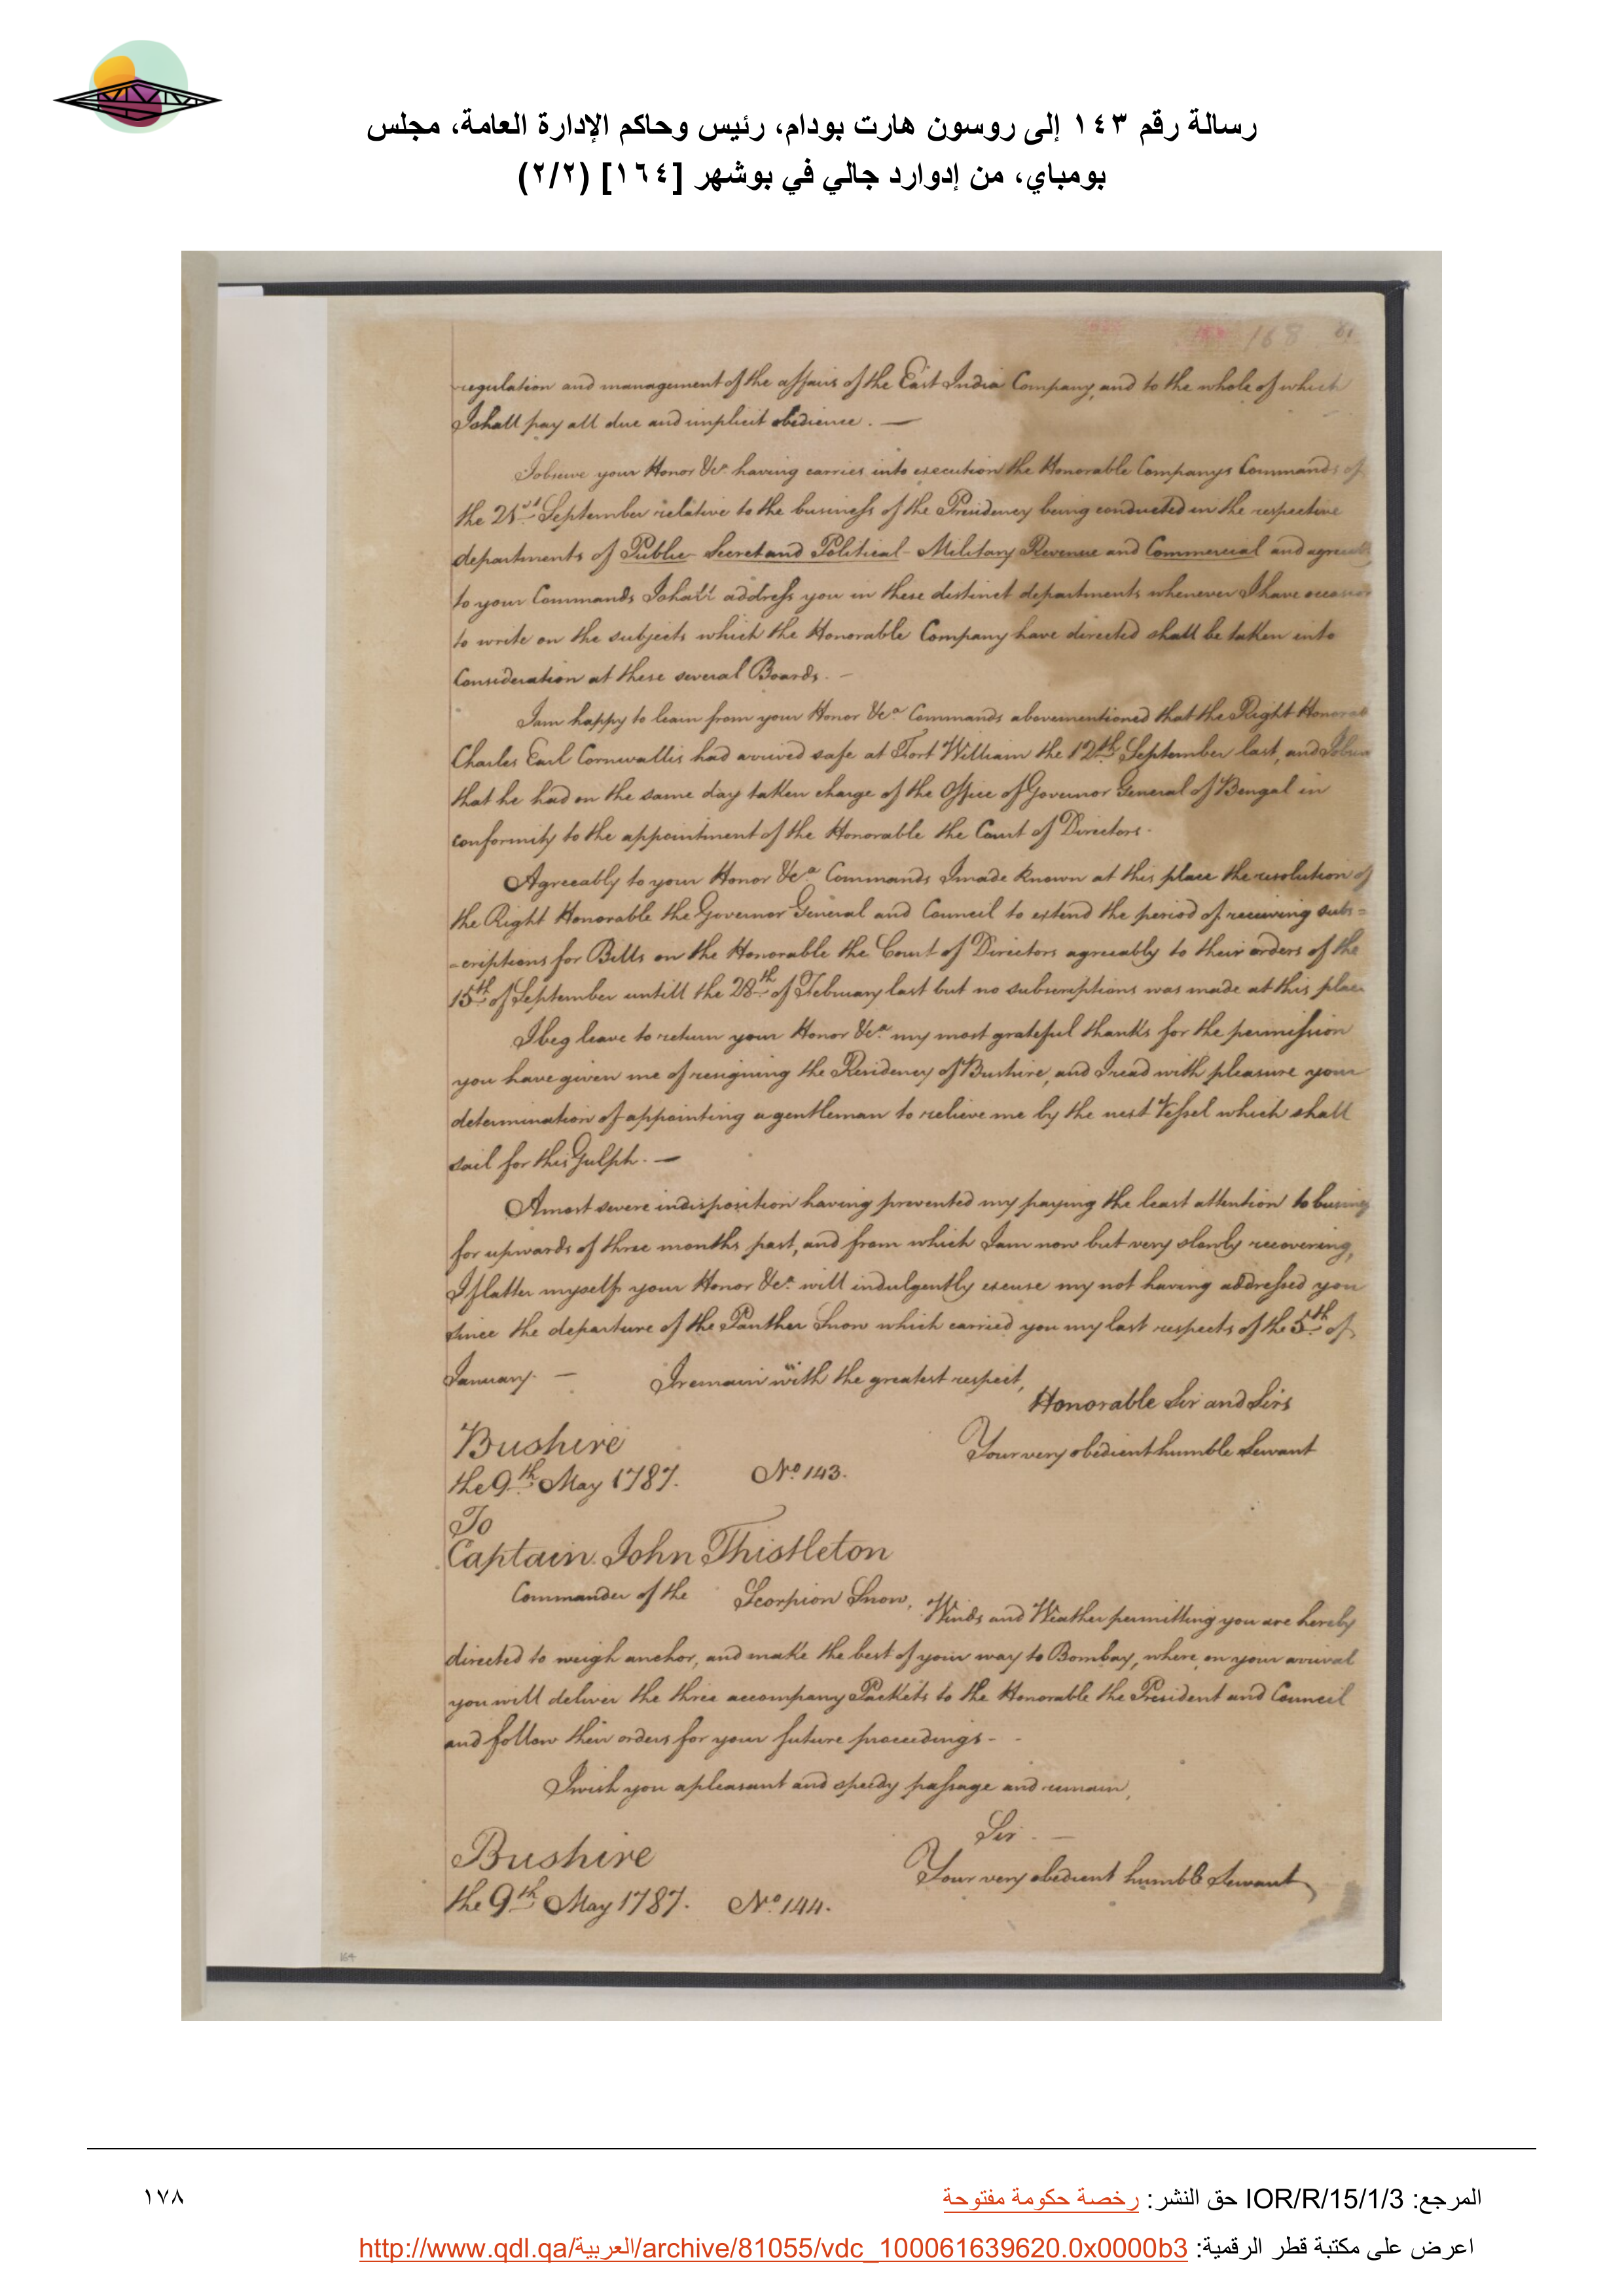 رسالة رقم ١٤٣ إلى روسون هارت بودام، رئيس وحاكم الإدارة العامة، مجلس
بومباي، من إدوارد جالي في بوشهر [١٦٤] (٢/٢)
168
regulation and management of the affairs of the East India Company, and to the whole of which
I shall pay all due and implicit obedience. —
I observe your Honor &ca. having carries into execution the Honorable Companys Commands of
the 21st September relative to the business of the Presidency being conducted in the respective
departments of Public - Secret and Political - Military Revenue and Commercial and agreeably
to your Commands I shall address you in these distinct departments whenever I have occasion
to write on the subjects which the Honorable Company have directed shall be taken into
Consideration at these several Boards. —
I am happy to learn from your Honor &ca. Commands abovementioned that the Right Honorab
Charles Earl Cornwallis had arrived safe at Fort William the 12th September last, and I observe
that he had on the same day taken charge of the Office of Governor General of Bengal in
conformity to the appointment of the Honorable the Court of Directors.
Agreeably to your Honor &ca. Commands I made known at this place the resolution of
the Right Honorable the Governor General and Council to extend the period of receiving subs=
=criptions for Bills on the Honorable the Court of Directors agreeably to their orders of the
15th of September untill the 28th of February last but no subscriptions was made at this place
I beg leave to return your Honor &ca. my most grateful thanks for the permission
you have given me of resigning the Residency of Bushire, and I read with pleasure your
determination of appointing a gentleman to relieve me by the next Vessel which shall
sail for this Gulph. —
A most severe indisposition having prevented my paying the least attention to business
for upwards of three months past, and from which I am now but very slowly recovering,
I flatter myself your Honor &ca. will indulgently excuse my not having addressed you
since the departure of the Panther Snow which carried you my last respects of the 5th of
January. — I remain with the greatest respect,
Honorable Sir and Sirs
Your very obedient humble Servant
Bushire
the 9th May 1787. No. 143.
To
Captain John Thistleton
Commander of the Scorpion Snow,
Winds and Weather permitting you are hereby
directed to weigh anchor, and make the best of your way to Bombay, where on your arrival
you will deliver the three accompany Packets to the Honorable the President and Council
and follow their orders for your future proceedings -
I wish you a pleasant and speedy passage and remain,
Sir. —
Your very obedient humble Servant
Bushire
the 9th May 1787. No. 144.
164
المرجع: IOR/R/15/1/3 حق النشر: رخصة حكومة مفتوحة
١٧٨
اعرض على مكتبة قطر الرقمية: http://www.qdl.qa/العربية/archive/81055/vdc_100061639620.0x0000b3